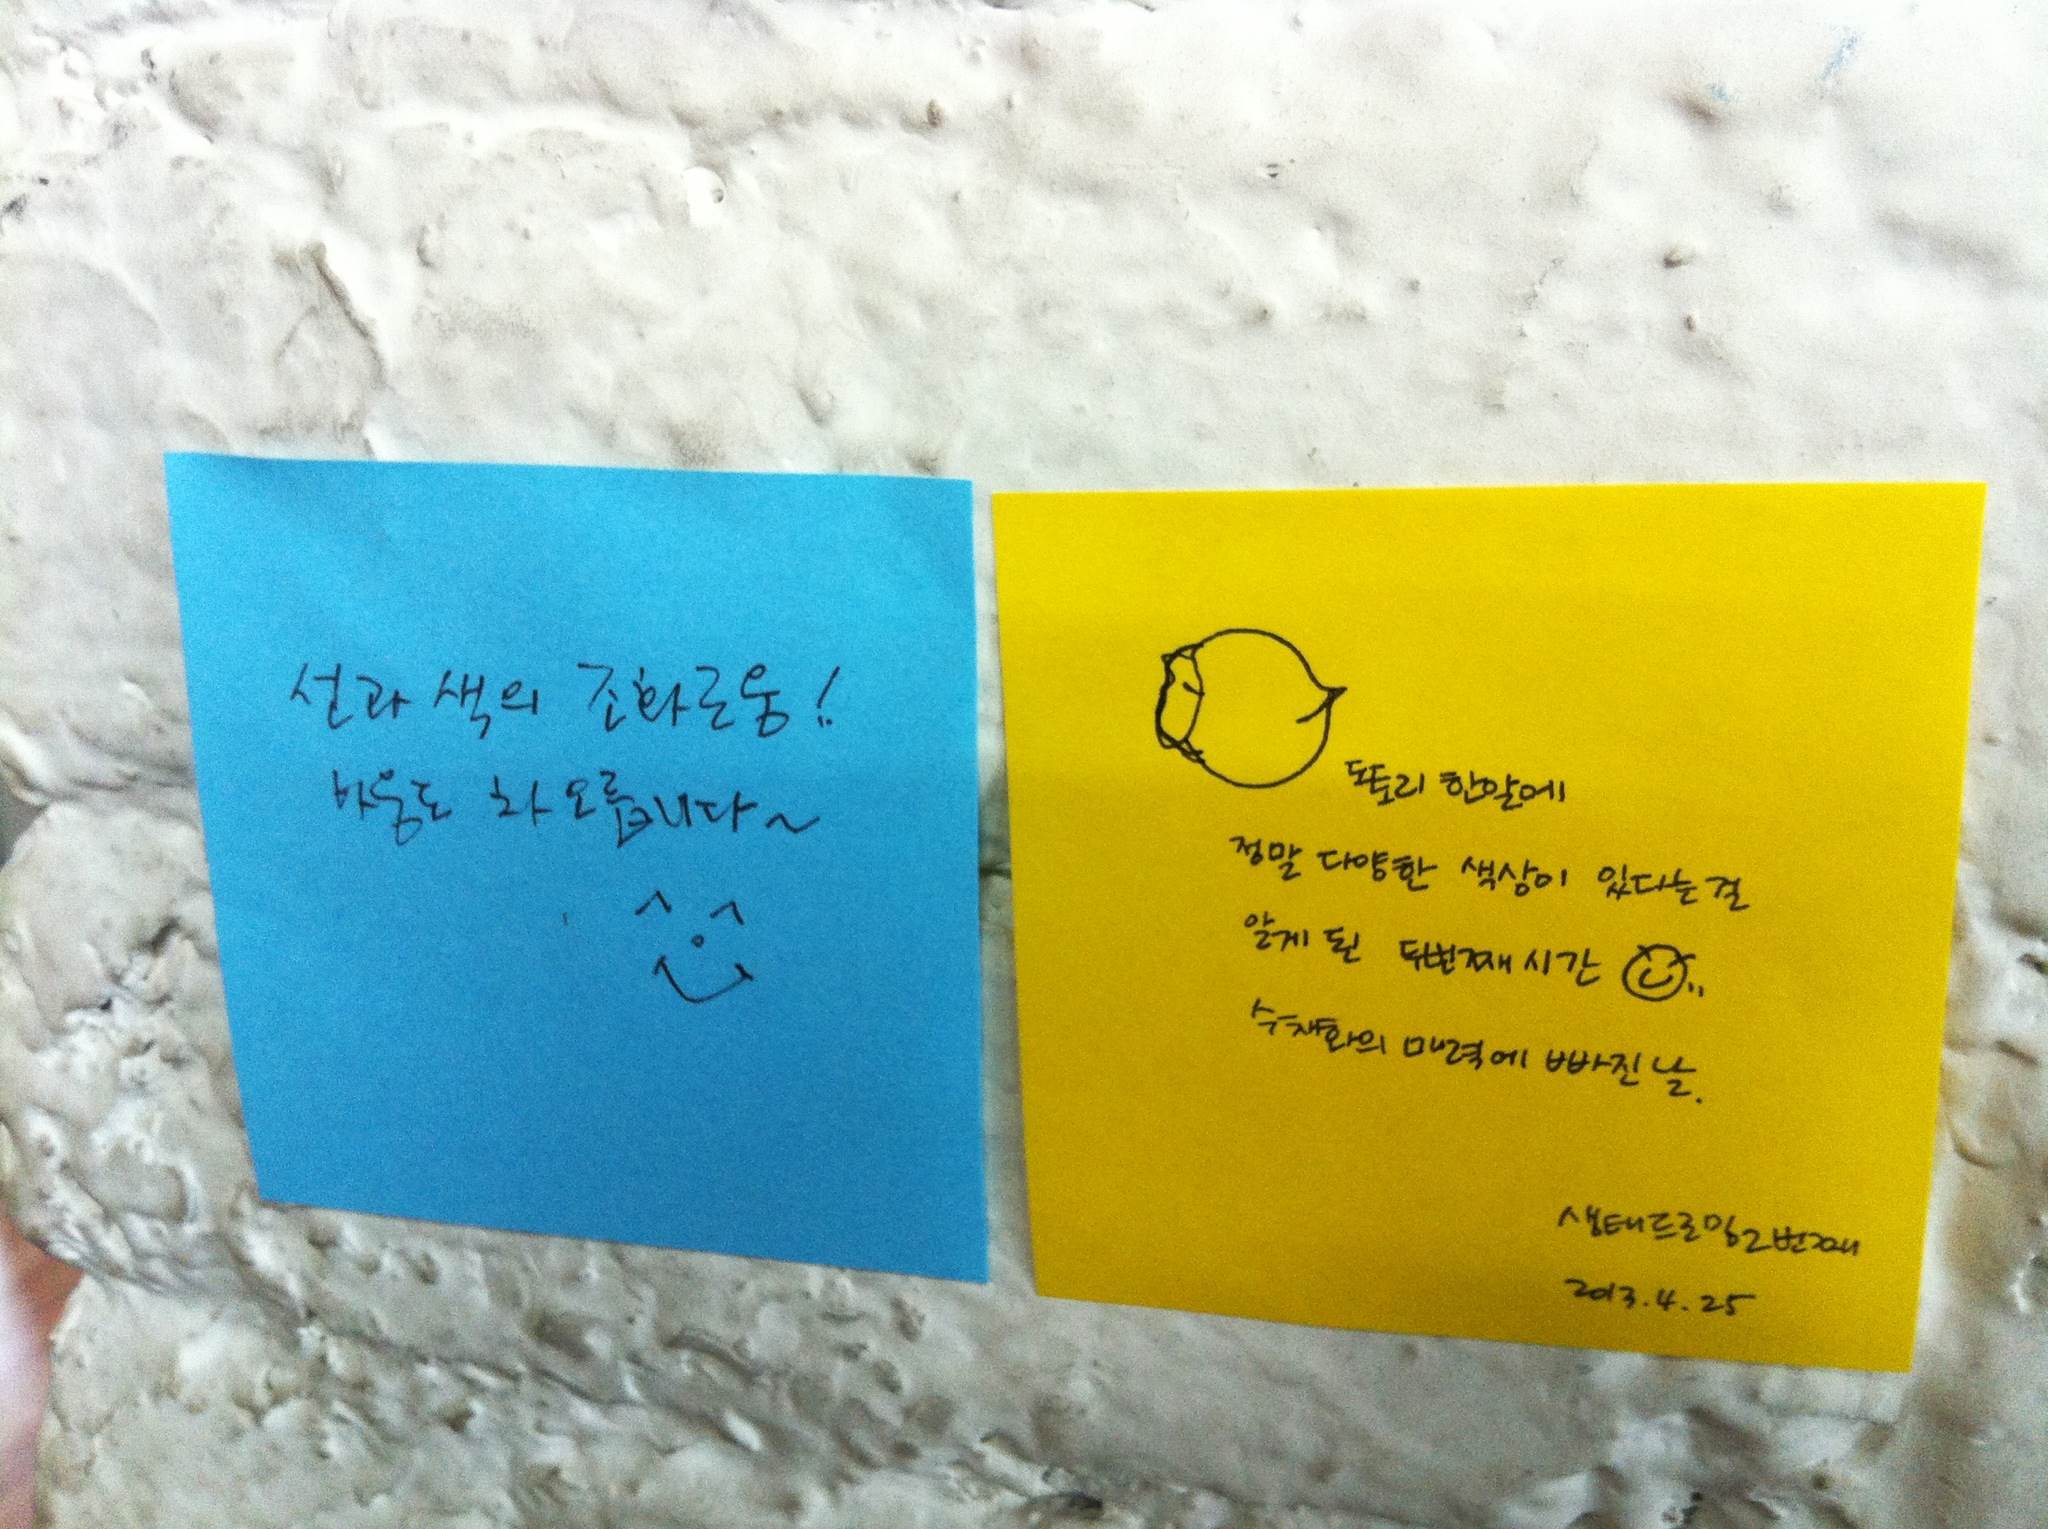 선과 색의 조화로움!
차오릅니다~
도토리 한알에
정말 다양한 색상이 있다는 걸
알게 된 두번째 시간
수채화의 매력에 빠진 날.
생태드로잉 2번째
2013.4.25